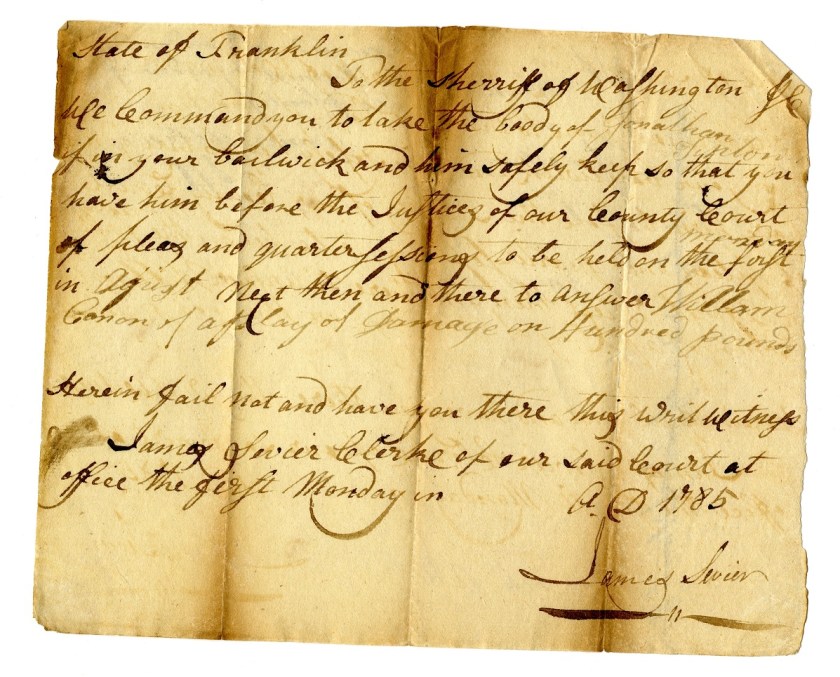 State of Franklin
To the Sherriff of Washington &C
We Command you to take the boody of Jonathan
Tipton
if in your bailwick and him safely keep so that you
have him before the Justices of our County Court
monday
of pleas and quarter sessions to be held on the first
in Agust Next then and there to answer William
Conon of a play of Damage on Hundred pounds
Herein fail not and have you there this writ witness
James Sevier Clerke of our said Court at
office the first Monday in A. D 1785
James Sevier